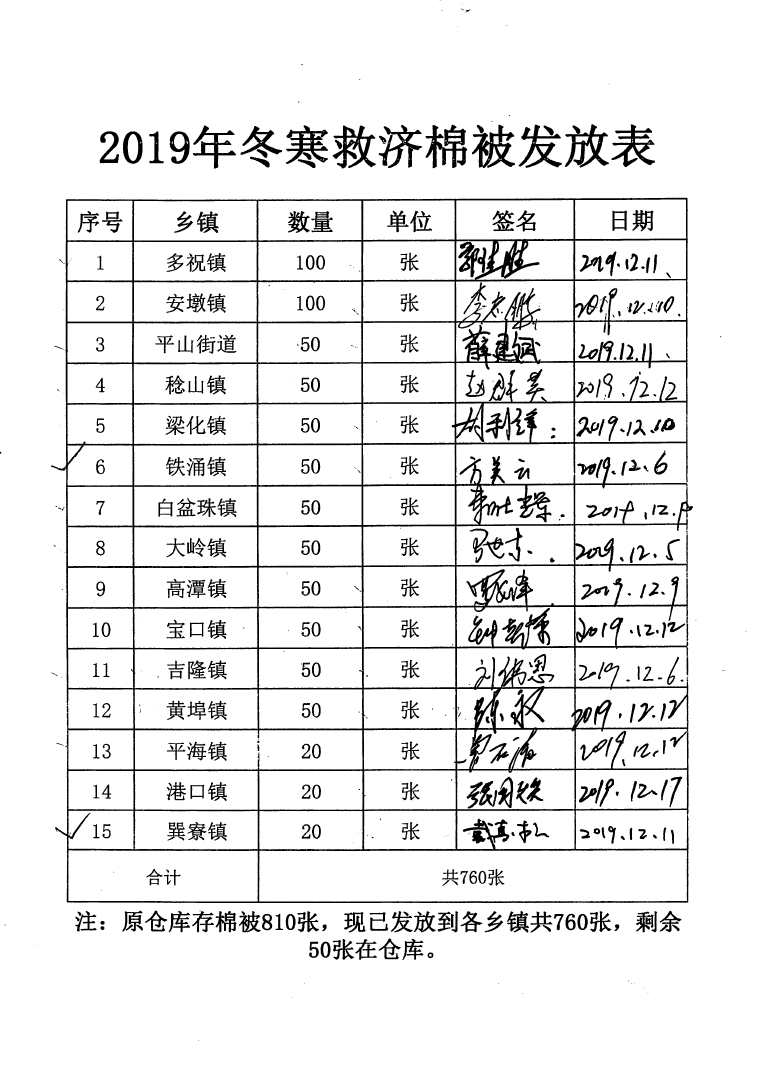 2019年冬寒救济棉被发放表
序号 乡镇 数量 单位 签名 日期
1 多祝镇 100 张 2019.12.11
2 安墩镇 100 张 2019.12.10.
3 平山街道 50 张 2019.12.11
4 稔山镇 50 张 赵群昊 2019.12.12
5 梁化镇 50 张 2019.12.10
6 铁涌镇 50 张 方美云 2019.12.6
7 白盆珠镇 50 张
8 大岭镇 50 张 2019.12.5
9 高潭镇 50 张 2019.12.9
10 宝口镇 50 张 2019.12.12
11 吉隆镇 50 张 刘伟恩 2019.12.6.
12 黄埠镇 50 张 陈永权 2019.12.12
13 平海镇 20 张 2019.12.12
14 港口镇 20 张 2019.12.17
15 巽寮镇 20 张 2019.12.11
合计 共760张
注：原仓库存棉被810张，现已发放到各乡镇共760张，剩余
50张在仓库。